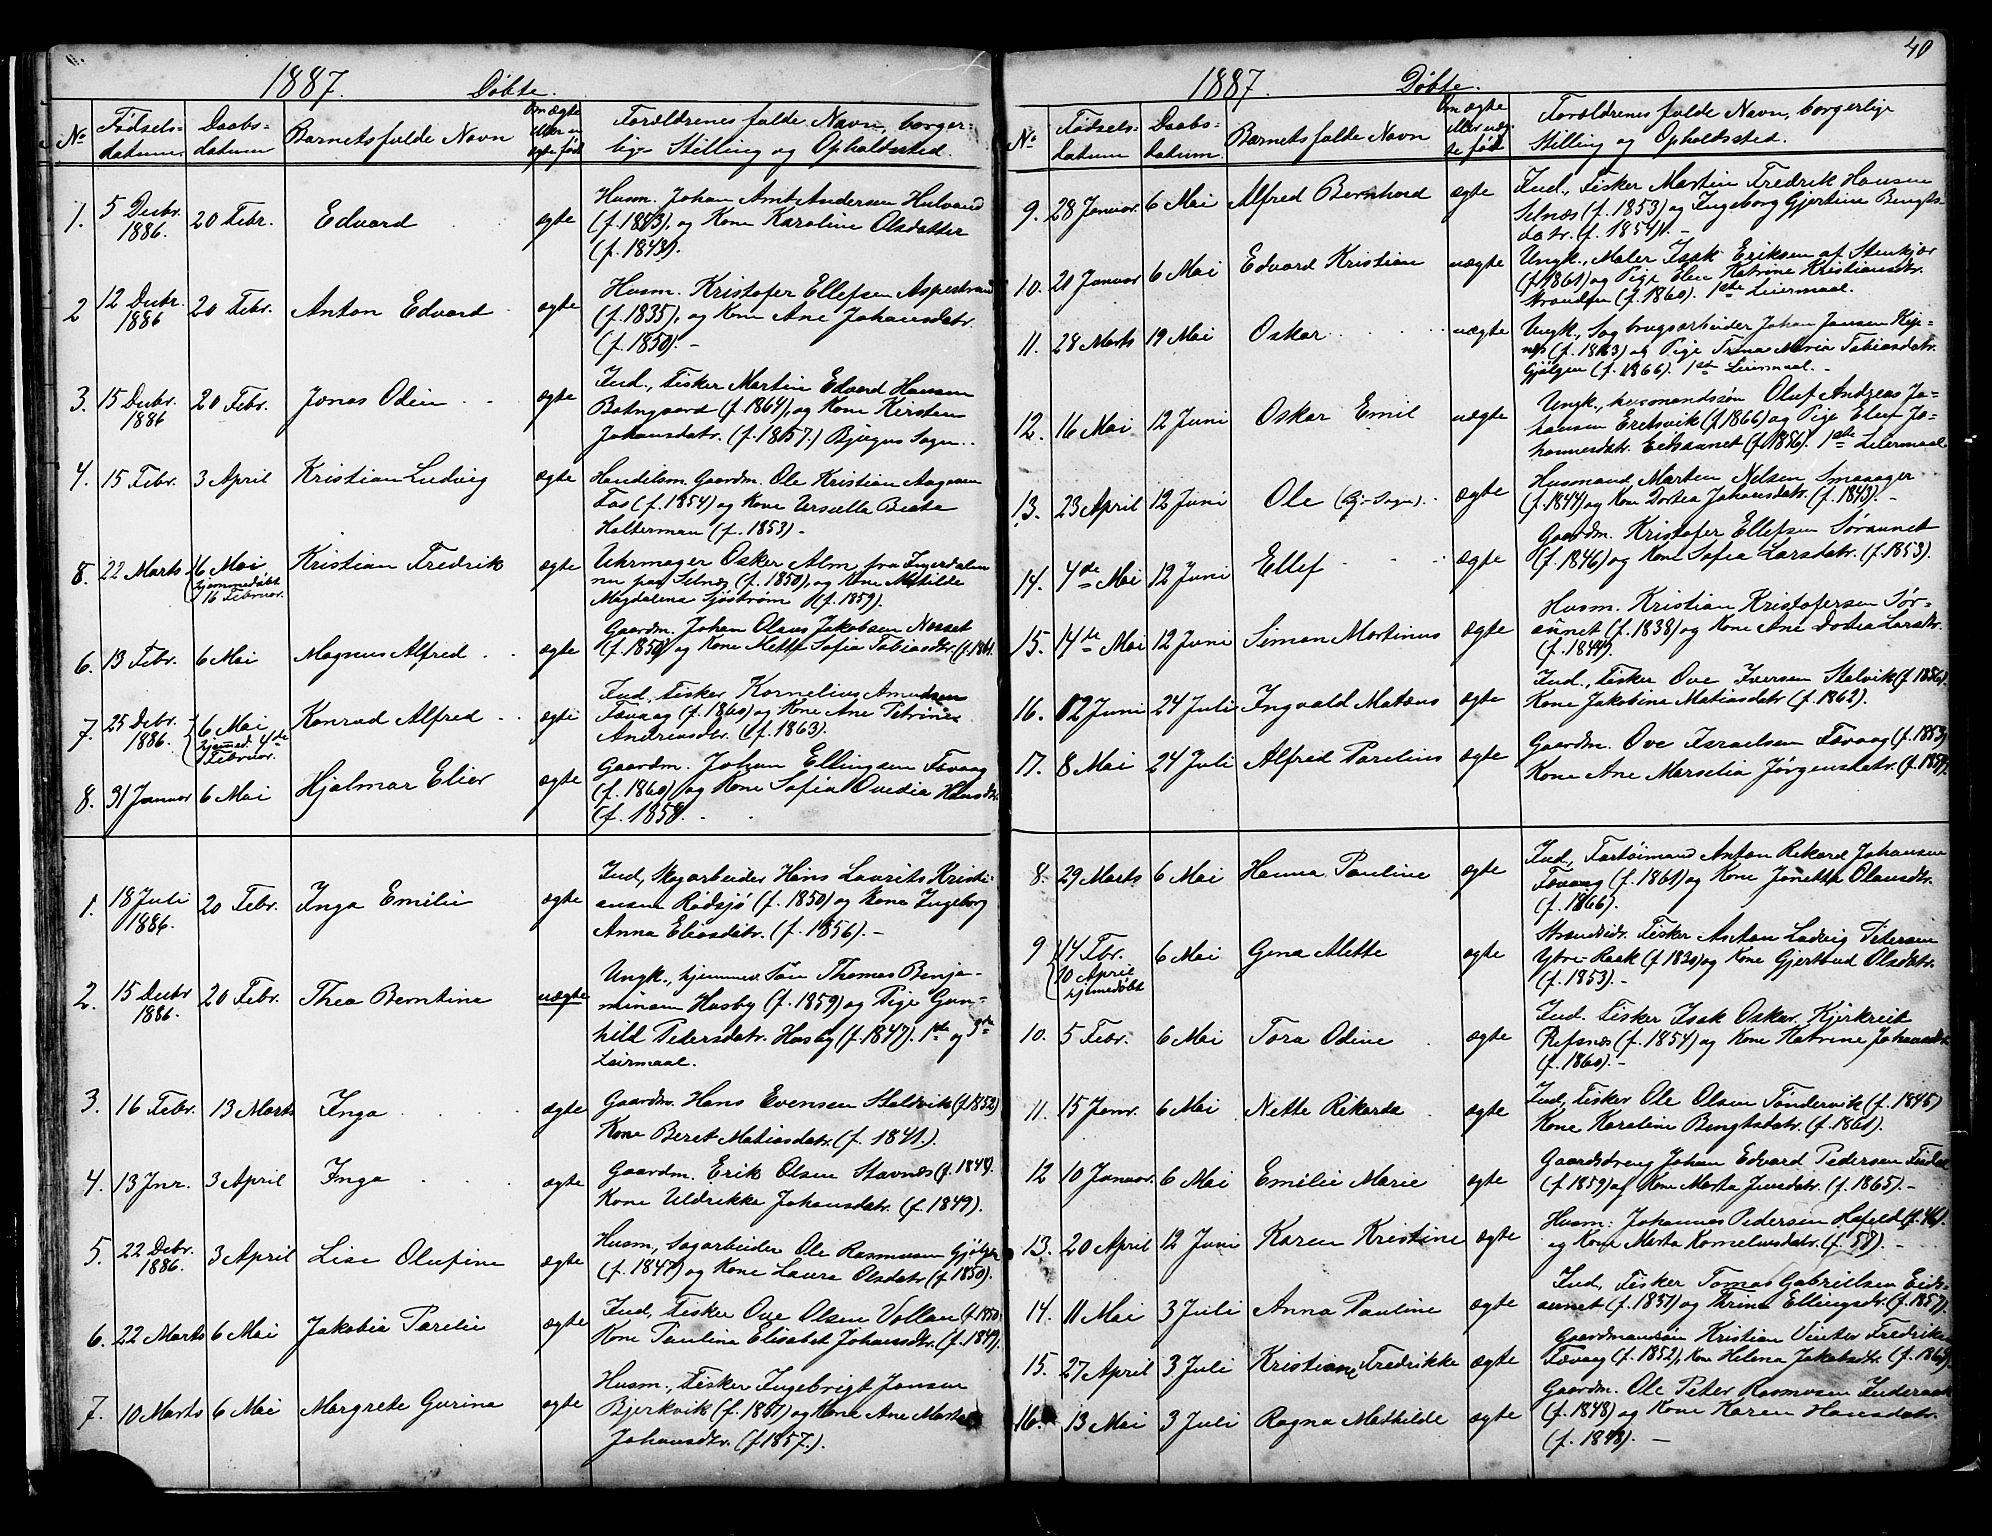 1887. Døbte.
No Fødselsdatum. Daabsdatum Barnets fulde Navn Om ægte eller uægte født Forældrenes fulde Navn, borgerlige Stilling og Opholdssted.
1. 5 Decbr. 1886. 20 Febr. Edvard ægte Husm. Johan Arnt Andersen
(f. 1843), og Kone Karoline Olsdatter
(f. 1843).
2 12 Decbr. 1886 20 Febr. Anton Edvard ægte Husm. Kristofer Ellefsen Aspestrand
(f. 1835), og Kone Ane Johansdatr.
(f. 1850). -
3. 15 Decbr. 1886 20 Febr. Jonas Odin ægte Ind., Fisker Martin Edvard Hansen
Botngaard (f. 1864), og Kone Kirsten
Johansdatr. (f. 1857.) Bjugns Sogn.
4. 15 Febr. 3 April Kristian Ludvig ægte Handelsm. Gaardm. Ole Kristian Aagesen
Fos (f. 1854) og Kone Ursella Beata
Halterman (f. 1853) -
5. 22 Marts 6 Mai hjemmedøbt 16 Februar. Kristian Fredrik ægte Uhrmager Oskar Alm, fra Inderdalen
nu paa Selnæs (f. 1850), og Kone Matilde
Magdalena Sjøstrøm (f. 1859).
6. 13 Febr. 6 Mai Magnus Alfred ægte Gaardm. Johan Olaus Jakobsen Nesset
(f. 1850) og Kone Mette Sofia Tobiasdtr. (f. 1861.
7. 25 Decbr. 1886. 6 Mai hjemmed. 4de Februar. Konrad Alfred ægte Ind., Fisker Kornelius Amundsen
Fævaag (f. 1860) og Kone Ane Petrine
Andreasdtr. (f. 1863).
8. 31 Januar 6 Mai Hjalmar Elier ægte Gaardm. Johan Ellingsen Fævaag
(f. 1860) og Kone Sofia Ovedia Hansdtr.
(f. 1858. -
1. 18 Juli 1886. 20 Febr. Inga Emilie ægte Ind., Vejarbeider Hans Laurits Kristiansen
Rødsjø (f. 1850) og Kone Ingeborg
Anna Eliasdatr. (f. 1856). -
2. 15 Decbr 1886. 20 Febr. Thea Berntine uægte Ungk., hjemmev. Søn Thomas Benjaminsen
Husby (f. 1859) og Pige Gunhild
Pedersdatr. Husby (f. 1847). 1ste og 3die
Leiermaal.
3. 16 Febr. 13 Marts Inga ægte Gaardm. Hans Evensen Stalvik (f. 1852)
Kone Beret Matiasdatr. (f. 1841.).
4. 13 Jnr. 3 April Inga ægte Gaardm. Erik Olsen Stavnæs (f. 1848).
Kone Uldrikke Johansdatr. (f. 1849).
5. 22 Decbr. 1886. 3 April Lise Olufine ægte Husm., Sagarbeider Ole Rasmusen Gjølgen
(f. 1847) og Kone Laura Olsdatr (f. 1850).
6. 22 Marts 6 Mai Jakobia Parelie ægte Ind., Fisker Ove Olsen Vollan (f. 1850,
Kone Paulina Elisabet Johansdtr. (f. 1849).
7. 10 Marts 6 Mai Margrete Gurina ægte Husm., Fisker Ingebrigt Jansen
Bjerkvik (f. 1851) og Kone Ane Marta
Johansdtr. (f. 1857.).
40
1887. Døbte.
No Fødselsdatum Daabsdatum. Barnets fulde Navn Om ægte eller uægte født Forældrenes fulde Navn, borgerlige Stilling og Opholdssted.
9. 28 Januar. 6 Mai Alfred Bernhard ægte Ind., Fisker Martin Fredrik Hansen
Selnæs (f. 1853) og Ingeborg Gjertine Bengtsdatr.
(f. 1854). -
10. 20 Januar 6 Mai Edvard Kristian uægte Ungk., Maler Isak Eriksen af Stenkjær
(f. 1861) og Pige Elen Katrine Kristiansdtr.
(f. 1860). 1ste Leiermaal.
11. 28 Marts 19 Mai Oskar uægte Ungk., Sagbrugsarbeider Johan Jansen
(f. 1863) og Pige Trena Maria Tobiasdatr.
Gjølgen (f. 1866). 1ste Leiermaal. -
12. 16 Mai 12 Juni Oskar Emil uægte Ungk., husmandssøn Oluf Andreas Johansen
Eretsvik (f. 1866) og Pige Elen Johannesdatr.
Eidsaunet (f. 1856). 1ste Leiermaal
13. 23 April 12 Juni Ole (Bj. Sogn). ægte Husmand, Morten Nelsen Smaaager
(f. 1844) og Kone Dortea Johansdatr. (f. 1843). -
14. 4de Mai 12 Juni Ellef ægte Gaardm. Kristofer Ellefsen Søraunet
(f. 1846) og Kone Sofia Larsdatr. (f. 1853).
15. 14de Mai 12 Juni Simon Martinus ægte Husm. Kristian Kristofersen Søraunet
(f. 1838) og Kone Ane Dortea Larsdtr.
(f. 1844).
16. 12 Juni 24 Juli Ingvald Matæus ægte Ind., Fisker Ove Iversen Stalvik (f. 1856).
Kone Jakobine Matiasdatr (f. 1862).
17. 8 Mai 24 Juli Alfred Parelius ægte Gaardm. Ove Israelsen Fævaag (f. 1853)
Kone Ane Marselia Jørgensdatr. (f. 1857).
8. 29 Marts 6 Mai Hanna Pauline ægte Ind., Fartøimand Anton Rikard Johansen
Fævaag (f. 1861) og Kone Jonette Olausdtr.
(f. 1866).
9 14 Fbr. 10 April hjemmedøbt 6 Mai Gina Alette ægte Strandsidr. Fisker Anton Ludvig Petersen
Ytre-Raak (f. 1830) og Kone Gjertrud Olsdatr.
(f. 1853). -
10. 5 Febr. 6 Mai Tora Odine ægte Ind. Fisker Isak Oskar Kjerkreit
Refsnes (f. 1854) og Kone Katrine Johansdtr.
(f. 1860). -
11. 15 Janr. 6 Mai Nette Rikarda ægte Ind., Fisker Ole Olsen Tøndervik (f. 1845)
Kone Karoline Bengtsdatr. (f. 1861).
12 10 Januar. 6 Mai Emilie Marie ægte Gaardsdreng Johan Edvard Pedersen
(f. 1859) af Kone Marta Jensdatr. (f. 1865). -
13. 20 April 12 Juni Karen Kristine ægte Husm: Johannes Pedersen Hafeld (f. 46).
og Kone Marta Kornelusdatr. (f. 58). -
14. 11 Mai 3 Juli Anna Pauline ægte Ind., Fisker Tomas Gabrielsen Eidsaunet
(f. 1851) og Trine Ellingsdtr. (f. 1857).
15. 27 April 3 Juli Kristiane Fredrikke ægte Gaardmandssøn Kristian Vinter Fredriksen
Fævaag (f. 1852), Kone Helena Jakobsdtr. (f. 1865).
16. 13 Mai 3 Juli Ragna Mathilde ægte Gaardm. Ole Peter Rasmusen
(f. 1848) og Kone Karen Hansdatr.
(f. 1848). -